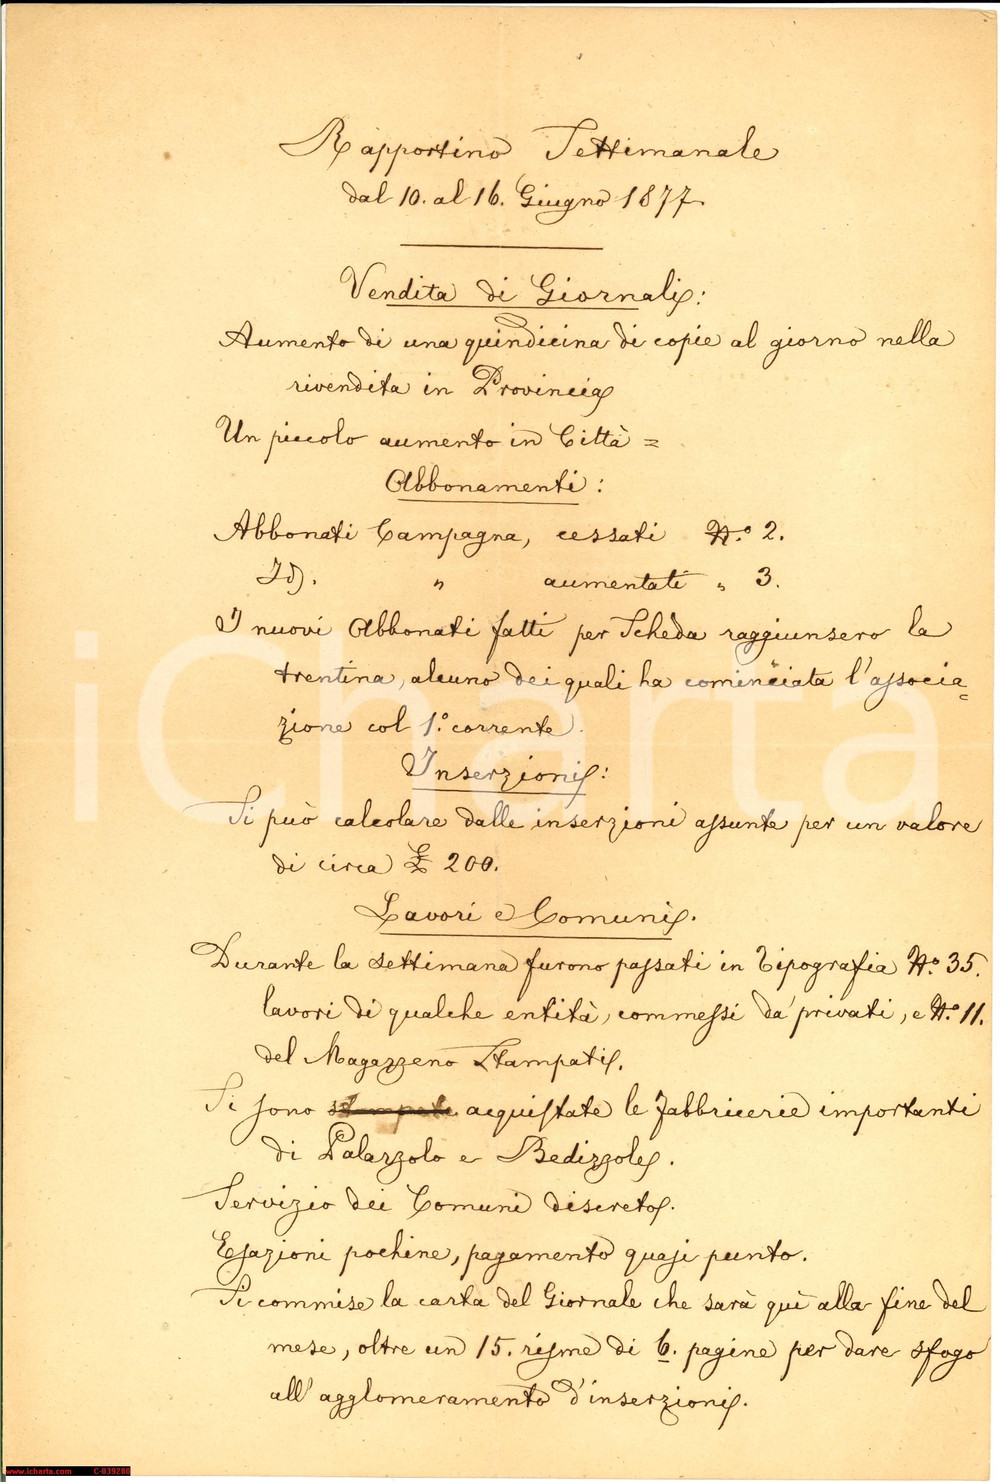 Rapportino Settimanale
dal 10. al 16. Giugno 1877
Vendita di Giornali:
Aumento di una quindicina di copie al giorno nella
rivendita in Provincia
Un piccolo aumento in Città =
Abbonamenti:
Abbonati Campagna, cessati N.o 2.
Id. " aumentati " 3.
I nuovi Abbonati fatti per Scheda raggiunsero la
trentina, alcuno dei quali ha cominciata l'associa=
zione col 1.o corrente.
Inserzioni:
Si può calcolare dalle inserzioni assunte per un valore
di circa £ 200.
Lavori e Comuni.
Durante la settimana furono passati in Tipografia N.o 35.
lavori di qualche entità, commessi da' privati, e N.o 11.
del Magazzeno Stampati.
Si sono stampate acquistate le Fabbricerie importanti
di Palazzolo e Bedizzole.
Servizio dei Comuni discreto.
Esazioni pochine, pagamento quasi punto.
Si commise la carta del Giornale che sarà quì alla fine del
mese, oltre un 15. risme di 6. pagine per dare sfogo
all'agglomeramento d'inserzioni.
iCharta
www.icharta.com C-039280